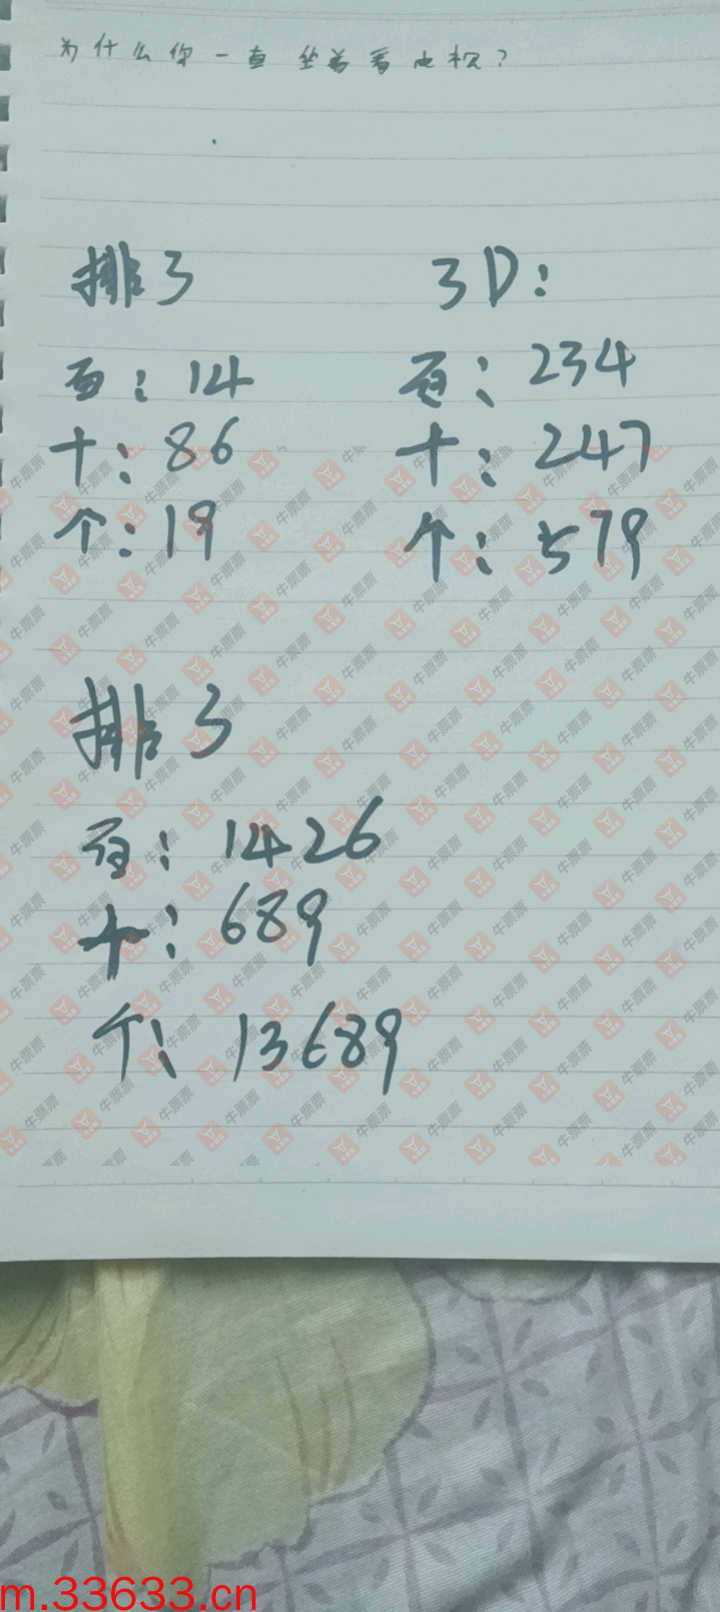 为什么你一直坐着看电视?
排3
百:14
十:86
个:19
3D:
百:234
十:247
个:579
排3
百:1426
十:689
个:13689
牛票票
m.33633.cn